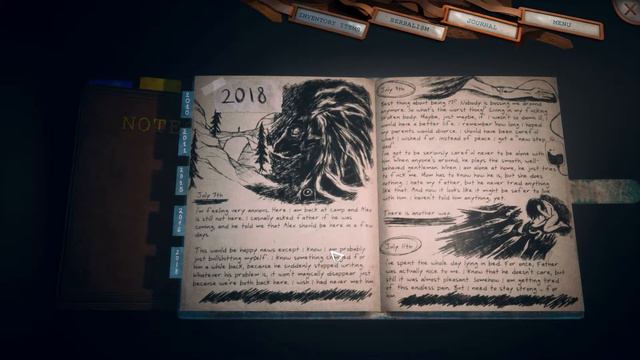 INVENTORY ITEMS
HERBALISM
JOURNAL
MENU
NOTE
2018
July 7th
I'm feeling very anxious. Here i am back at camp and Alex
is still not here. I casually asked father if he was
coming, and he told me that Alex should be here in a few
days.
This would be happy news except i know i am probably
just bullshitting myself. I know something for
him a while back, because he suddenly stopped writing.
Whatever his problem is, it won't magically disappear just
because we're both back here. I wish i had never met him
July 9th
Best thing about being 17? Nobody is bossing me around
anymore. So what's the worst thing? Living in my
broken body. Maybe, just maybe, if i wasn't so damn ill, i
would have a better life. I remember how long i hoped
my parents would divorce. I should have been careful
what i wished for. Instead of peace i got a "new step
dad".
I've got to be seriously careful never to be alone with
him. When anyone's around, he plays the smooth, well-
behaved gentleman. When i am alone at home, he just tries
to f*ck me. Mom has to know how he is, but she does
nothing. I hate my father, but he never tried anything
like that. And now it looks like it might be safer to live
with him. I haven't told him anything, yet.
There is another way.
July 11th
I've spent the whole day lying in bed. For once, Father
was actually nice to me. I know that he doesn't care, but
still it was almost pleasant. Somehow, i am getting tired
of this endless pen. But i need to stay strong - for